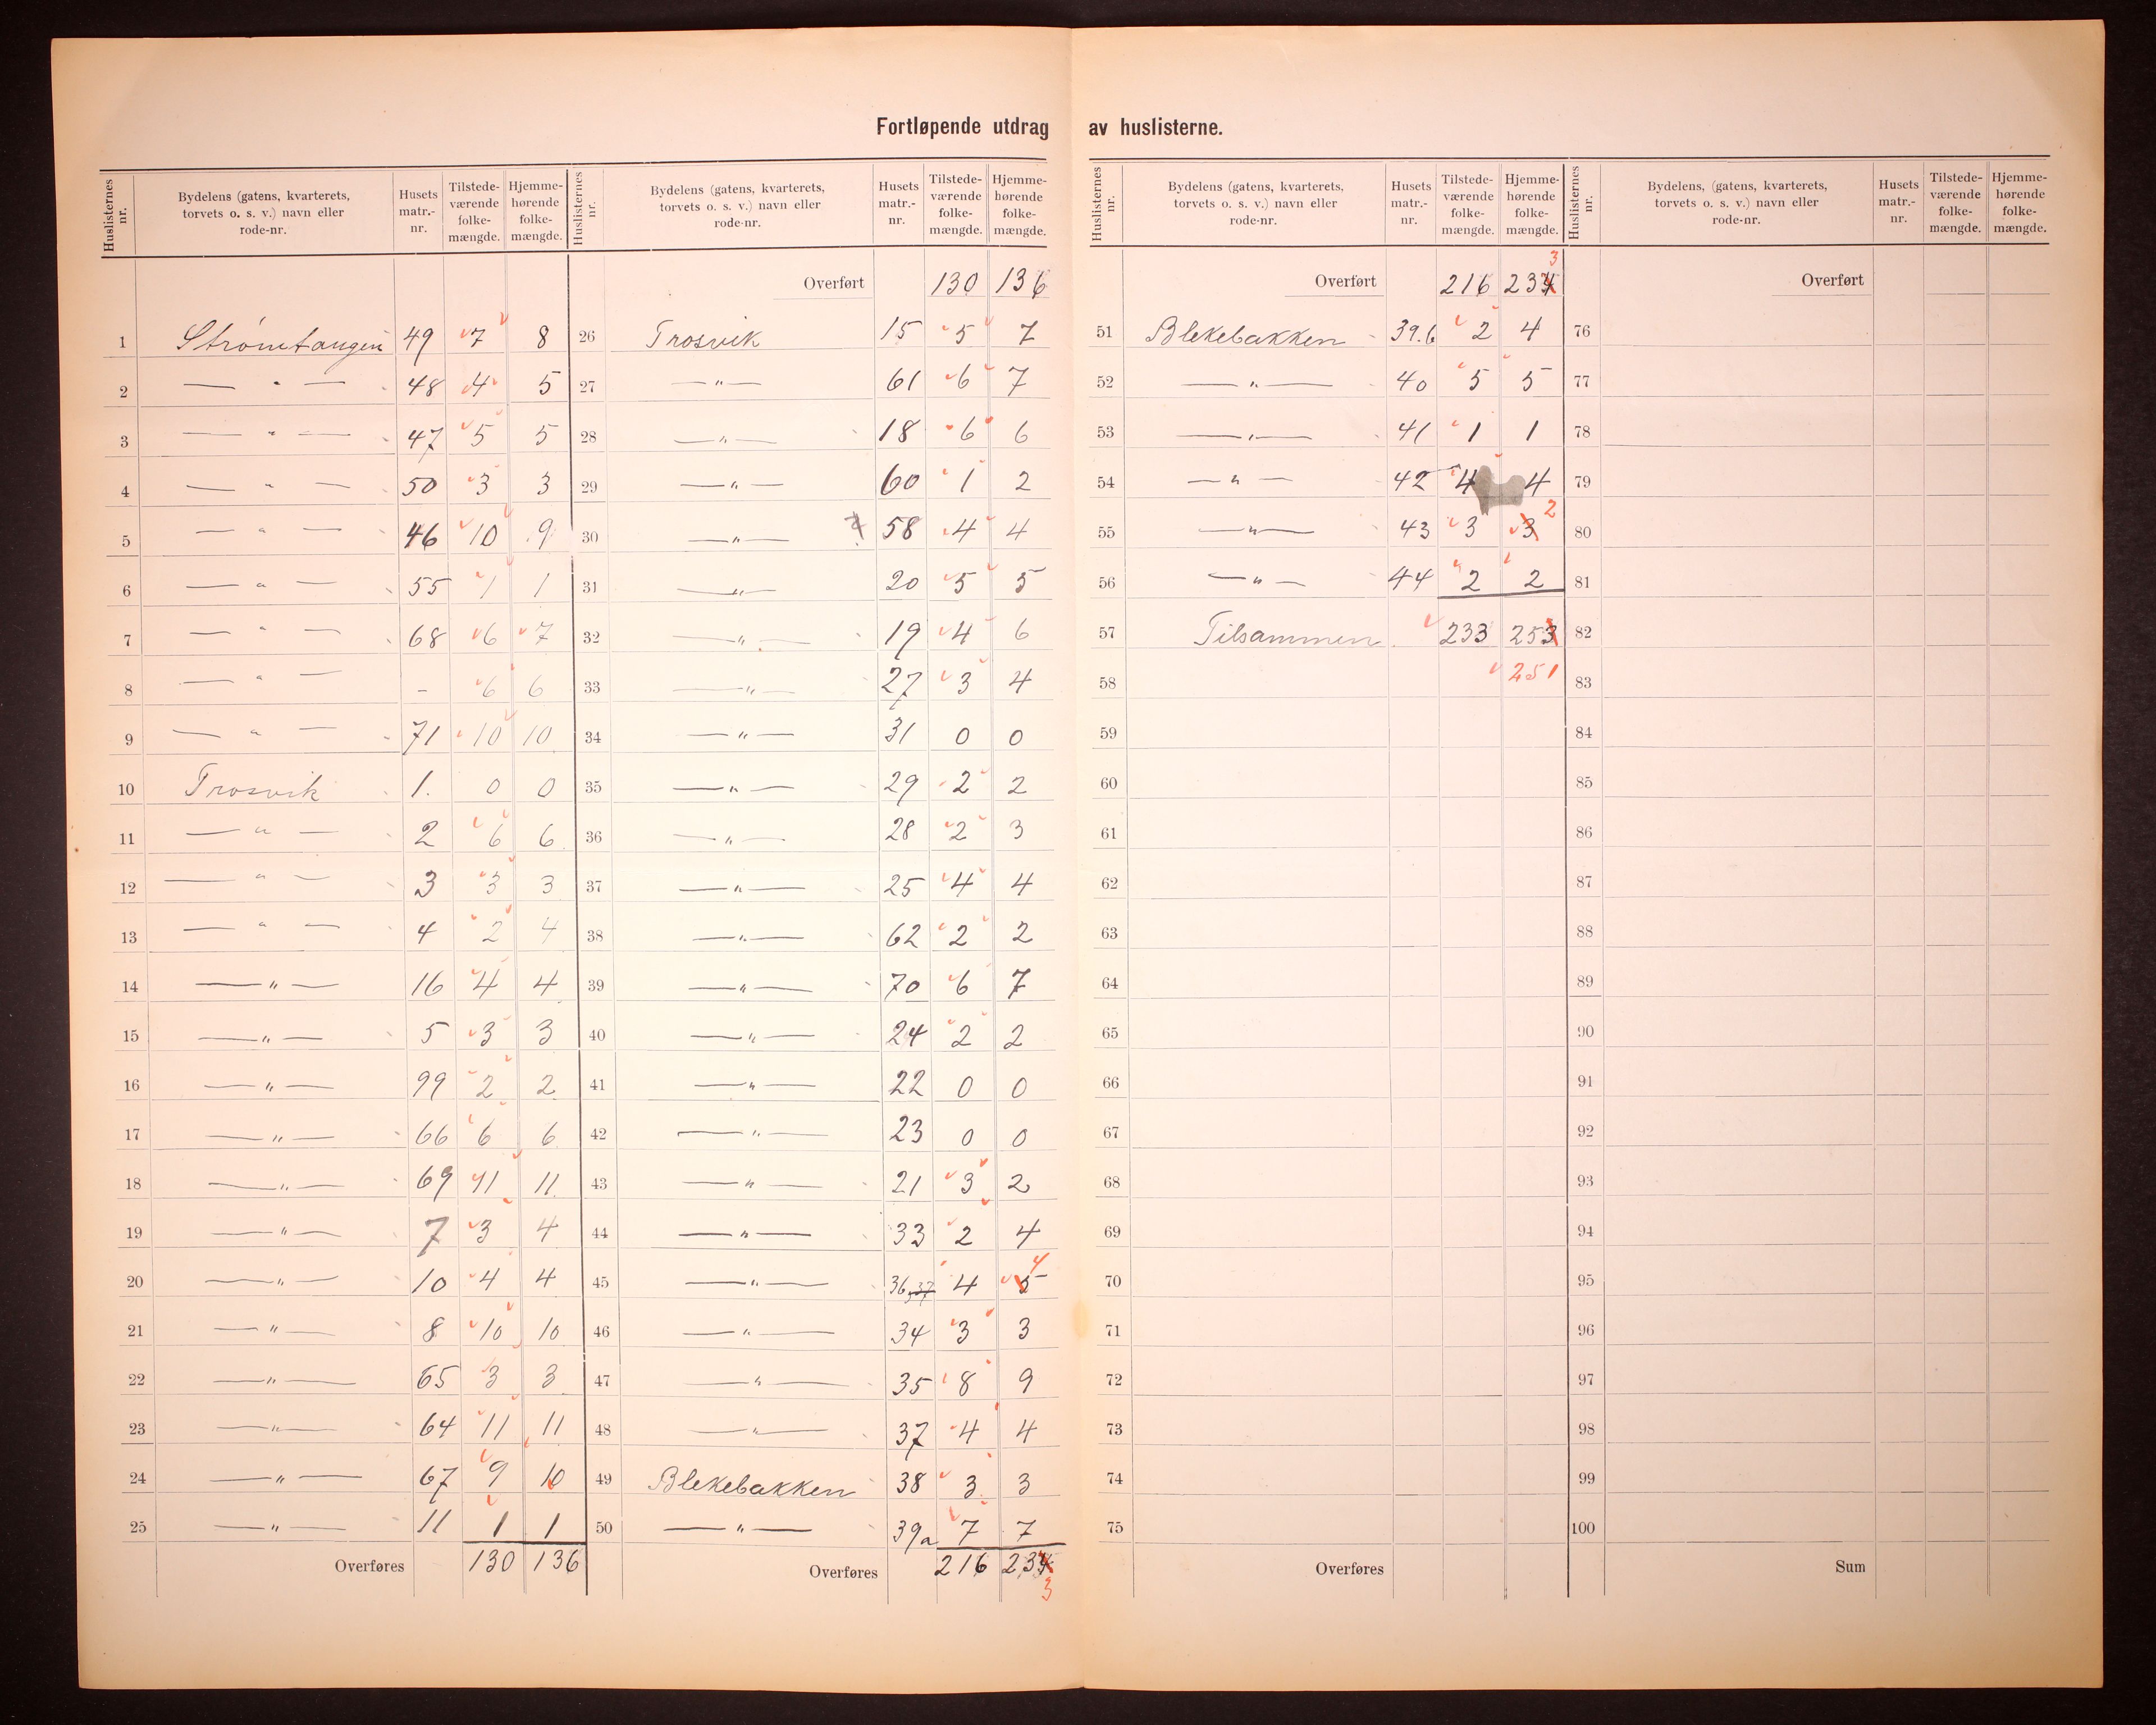 Fortløpende utdrag av huslisterne.
Huslisternes nr. | Bydelens (gatens, kvarterets, torvets o. s. v.) navn eller rode-nr. | Husets matr.-nr. | Tilstede-værende folke-mængde. | Hjemme-hørende folke-mængde.
1 Strømtangen 49 7 8
2 — " — 48 4 5
3 — " — 47 5 5
4 — " — 50 3 3
5 — " — 46 10 9
6 — " — 55 1 1
7 — " — 68 6 7
8 — " — - 6 6
9 — " — 71 10 10
10 Trosvik 1. 0 0
11 — " — 2 6 6
12 — " — 3 3 3
13 — " — 4 2 4
14 — " — 16 4 4
15 — " — 5 3 3
16 — " — 99 2 2
17 — " — 66 6 6
18 — " — 69 11 11
19 — " — 7 3 4
20 — " — 10 4 4
21 — " — 8 10 10
22 — " — 65 3 3
23 — " — 64 11 11
24 — " — 67 9 10
25 — " — 11 1 1
Overføres 130 136
Huslisternes nr. | Bydelens (gatens, kvarterets, torvets o. s. v.) navn eller rode-nr. | Husets matr.-nr. | Tilstede-værende folke-mængde. | Hjemme-hørende folke-mængde.
Overført 130 136
26 Trosvik 15 5 7
27 — " — 61 6 7
28 — " — 18 6 6
29 — " — 60 1 2
30 — " — 58 4 4
31 — " — 20 5 5
32 — " — 19 4 6
33 — " — 27 3 4
34 — " — 31 0 0
35 — " — 29 2 2
36 — " — 28 2 3
37 — " — 25 4 4
38 — " — 62 2 2
39 — " — 70 6 7
40 — " — 24 2 2
41 — " — 22 0 0
42 — " — 23 0 0
43 — " — 21 3 2
44 — " — 33 2 4
45 — " — 36,37 4 5 4
46 — " — 34 3 3
47 — " — 35 8 9
48 — " — 37 4 4
49 Blekebakken 38 3 3
50 — " — 39a 7 7
Overføres 216 234 3
Huslisternes nr. | Bydelens (gatens, kvarterets, torvets o. s. v.) navn eller rode-nr. | Husets matr.-nr. | Tilstede-værende folke-mængde. | Hjemme-hørende folke-mængde.
Overført 216 234 3
51 Blekebakken 39.b 2 4
52 — " — 40 5 5
53 — " — 41 1 1
54 — " — 42 4 4
55 — " — 43 3 3 2
56 — " — 44 2 2
57 Tilsammen 233 253
58 251
59
60
61
62
63
64
65
66
67
68
69
70
71
72
73
74
75
Overføres
Huslisternes nr. | Bydelens, (gatens, kvarterets, torvets o. s. v.) navn eller rode-nr. | Husets matr.-nr. | Tilstede-værende folke-mængde. | Hjemme-hørende folke-mængde.
Overført
76
77
78
79
80
81
82
83
84
85
86
87
88
89
90
91
92
93
94
95
96
97
98
99
100
Sum